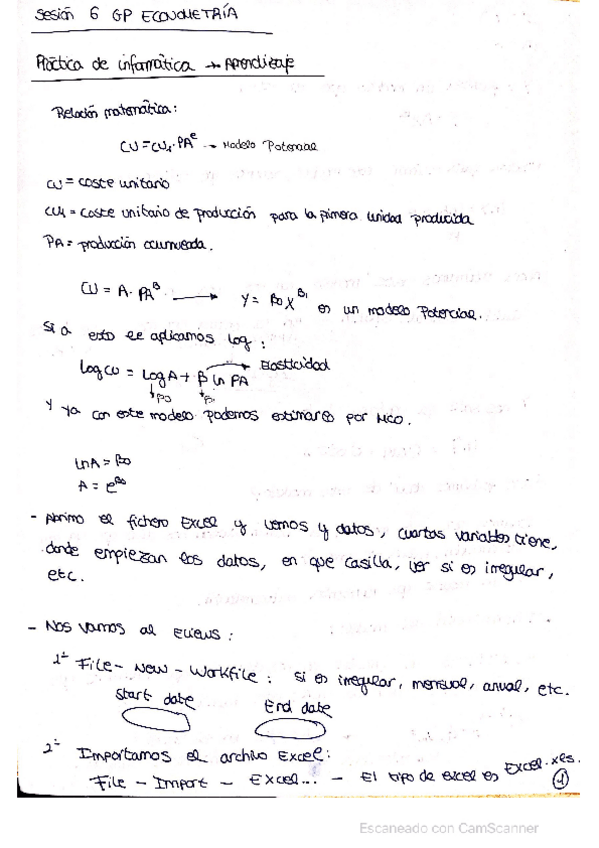 Sesión 6 GP ECONOMETRÍA
Práctica de informática → Aprendizaje
Relación matemática:
CU = CU₁ · PAᵉ → Modelo Potencial
CU = coste unitario
CU₁ = coste unitario de producción para la primera unidad producida
PA = producción acumulada.
CU = A · PAᴮ → Y = β₀X^β₁ es un modelo Potencial.
Si a esto le aplicamos log:
Log CU = Log A + β Ln PA → Elasticidad
↓β₀ ↓β₁
Y ya con este modelo podemos estimarlo por MCO.
Ln A = β₀
A = e^β₀
- Abrimo el fichero Excel y vemos y datos, cuantas variables tiene,
donde empiezan los datos, en que casilla, ver si es irregular,
etc.
- Nos vamos al Eviews:
1º File - New - Workfile: si es irregular, mensual, anual, etc.
Start date End date
2º Importamos el archivo Excel:
File - Import - Excel... - El tipo de excel es Excel.xls.
1
Escaneado con CamScanner